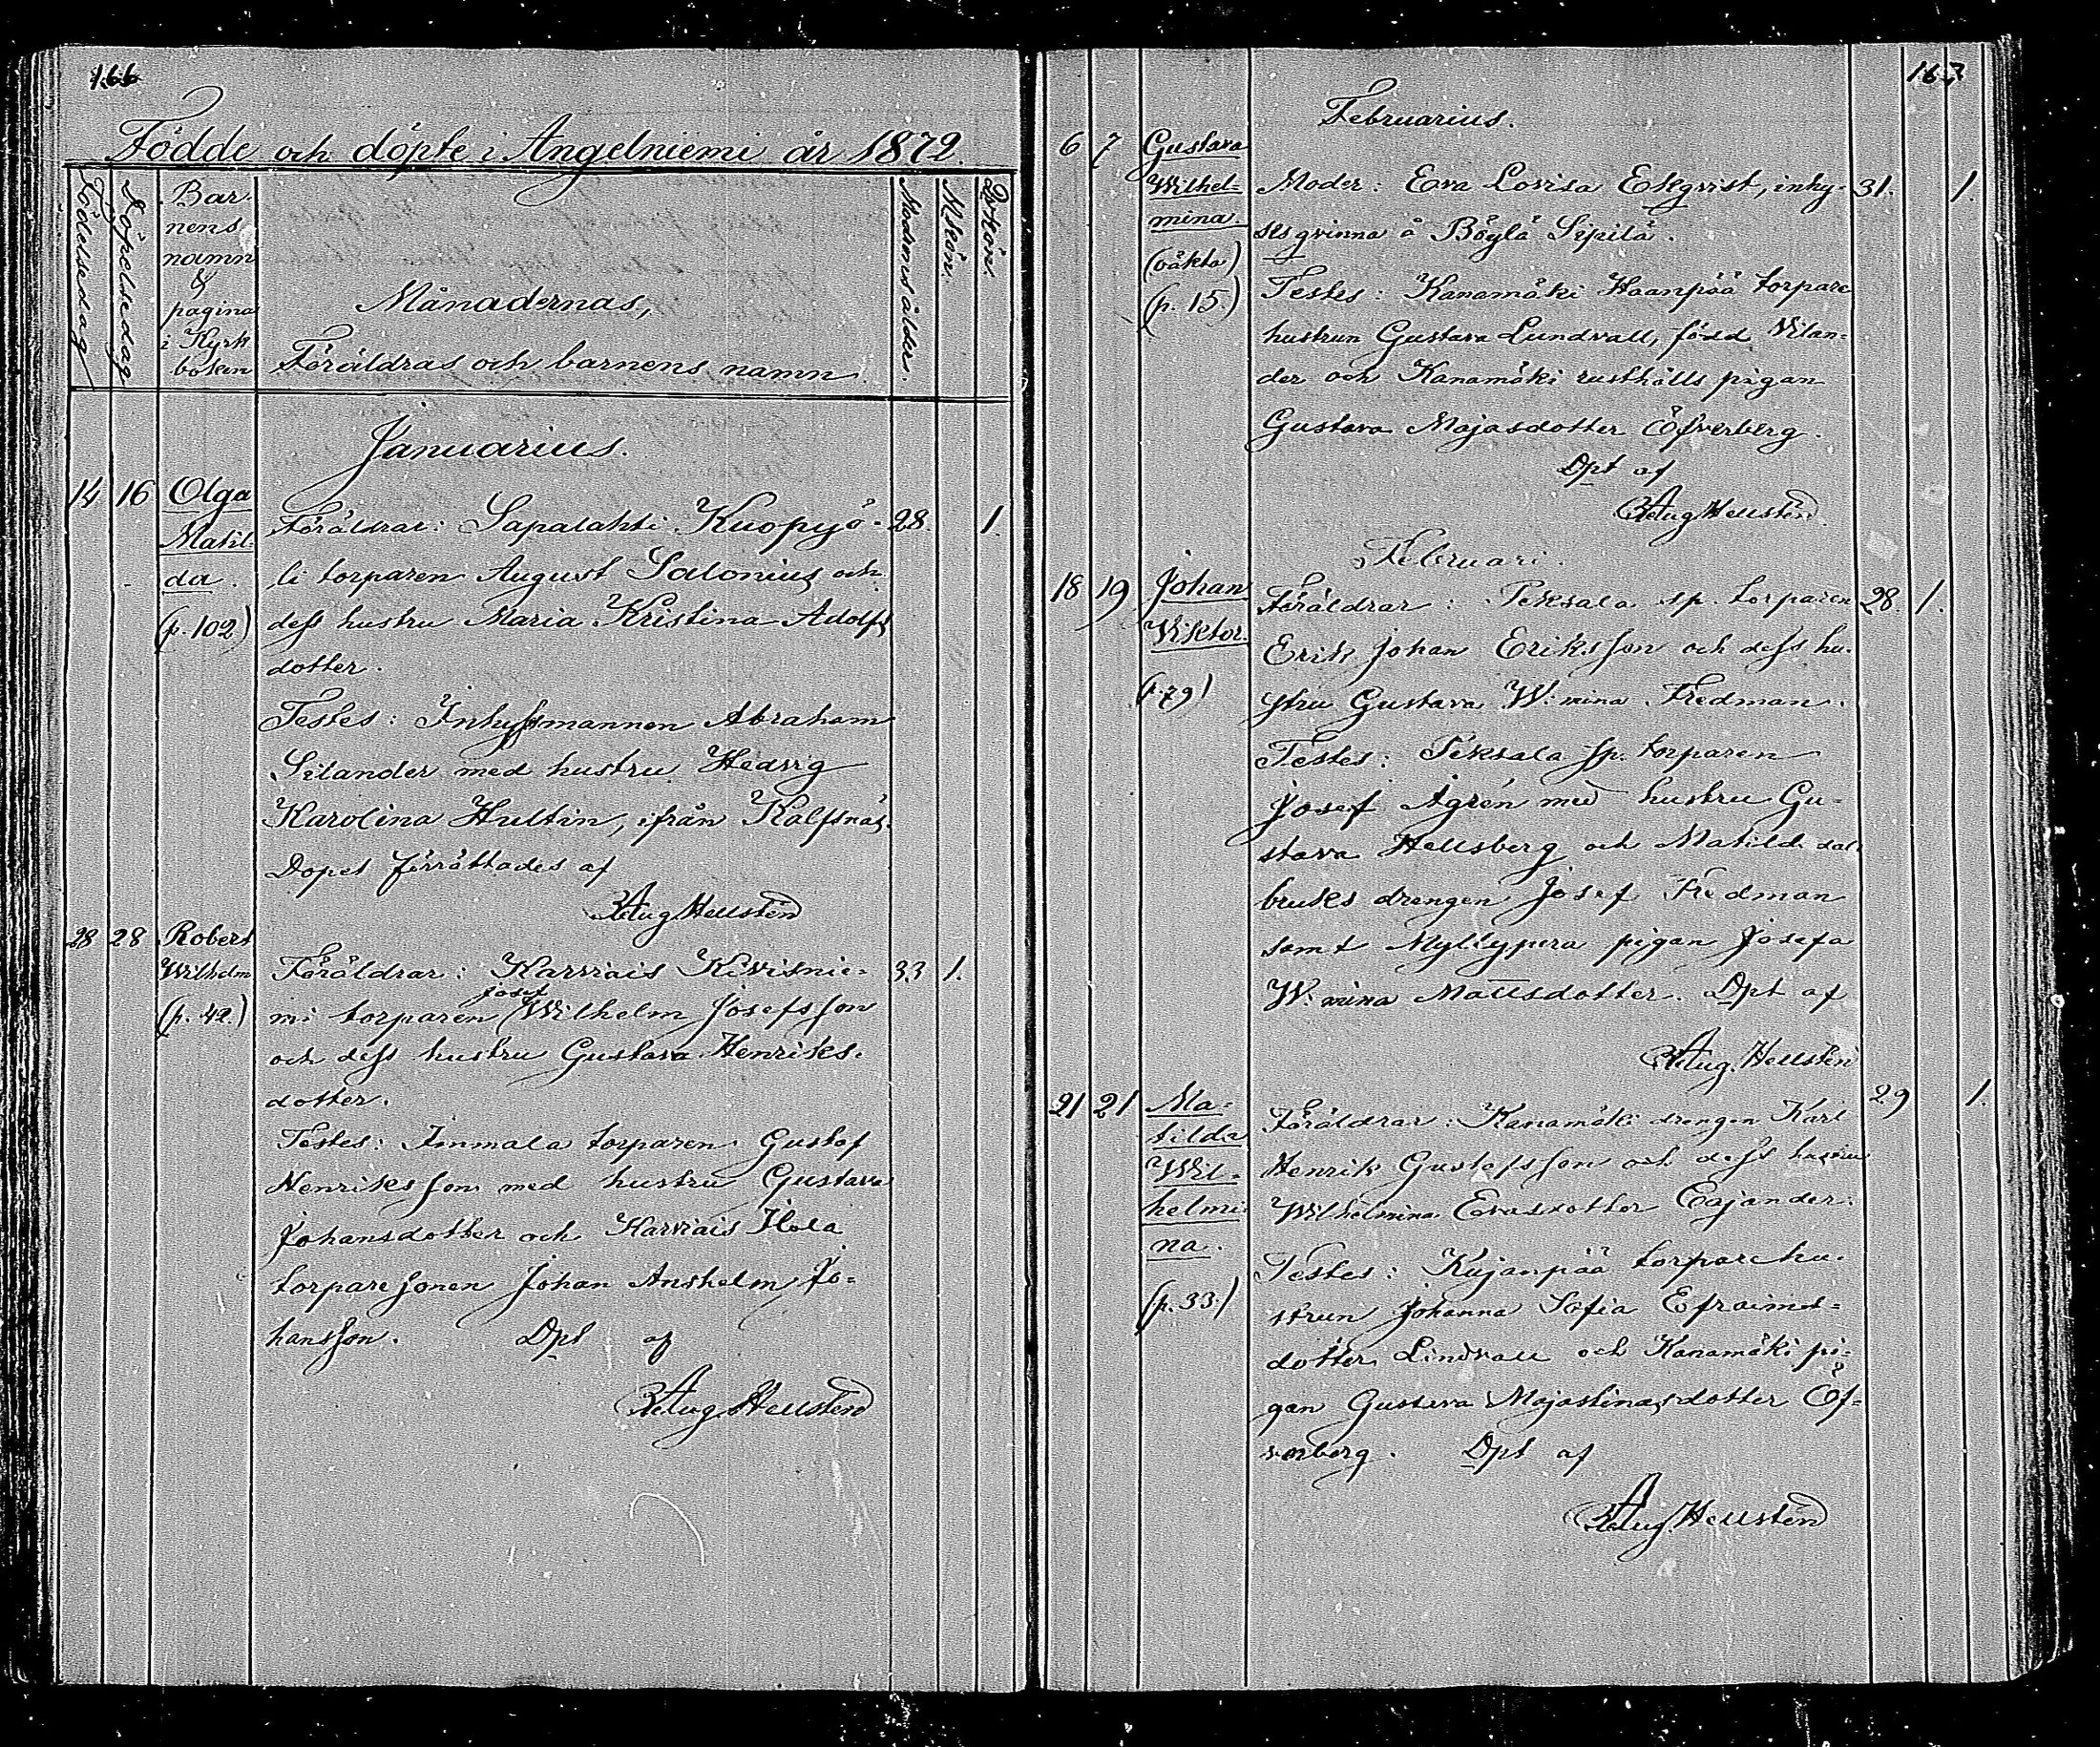 166
Födde och döpte i Angelniemi år 1872.
Födelsedag
Döpelsedag
Bar-
nens
namn
&
pagina
i Kyrk
boken
Månadernas,
Föräldras och barnens namn.
Moderns ålder.
M.kön.
Q.kön.
Januarius.
14 16 Olga
Matil-
da.
(p. 102)
Föräldrar: Sapalahti Kuopyö- 28. 1.
li torparen August Salonius och
dess hustru Maria Kristina Adolfs
dotter.
Testes: Inhysesmannen Abraham
Silander med hustru Hedvig
Karolina Hultin, ifrån Kalfsnäs.
Dopet förrättades af
Aug. Hellstén
28 28 Robert
Wilhelm
(p. 42.)
Föräldrar: Karviais Kivisnie- 33 1.
josef
mi torparen Wilhelm Josefsson
och dess hustru Gustava Henriks-
dotter.
Testes: Immala torparen Gustaf
Henriksson med hustru Gustava
Johansdotter och Karviais Ilola
torparesonen Johan Anshelm Jo-
hansson. Dpt af
Aug. Hellstén
167
Februarius.
6 7 Gustava
Wilhel-
mina
(oäkta)
(p. 15.)
Moder: Eva Lovisa Ekqvist, inhy- 31. 1.
ses qvinna å Böylä Sepilä.
Testes: Kanamäki Haanpää torpare
hustrun Gustava Lundvall, född Vilan-
der och Kanamäki rusthålls pigan
Gustava Majasdotter Öfverberg.
Dpt af
Aug Hellstén
Februari.
18 19 Johan
Viktor.
(p. 79)
Föräldrar: Peksala sp. torparen 28. 1.
Erik Johan Eriksson och dess hu-
stru Gustava W:mina Fredman.
Testes: Peksala sp. torparen
Josef Ågrén med hustru Gu-
stava Hellsberg och Matild. dal
bruks drengen Josef Fredman
samt Myllyperä pigan Josefa
W:mina Mattsdotter. Dpt af
Aug. Hellstén
21 21 Ma-
tilda
Wil-
helmi
na.
(p. 33.)
Föräldrar: Kanamäki drengen Karl 29 1.
Henrik Gustafsson och dess hustru
Wilhelmina Evasdotter Cajander.
Testes: Kujanpää torpare hu-
strun Johanna Sofia Efraims-
dotter Lindvall och Kanamäki pi-
gan Gustava Majastinasdotter Öf-
verberg. Dpt af
Aug. Hellstén